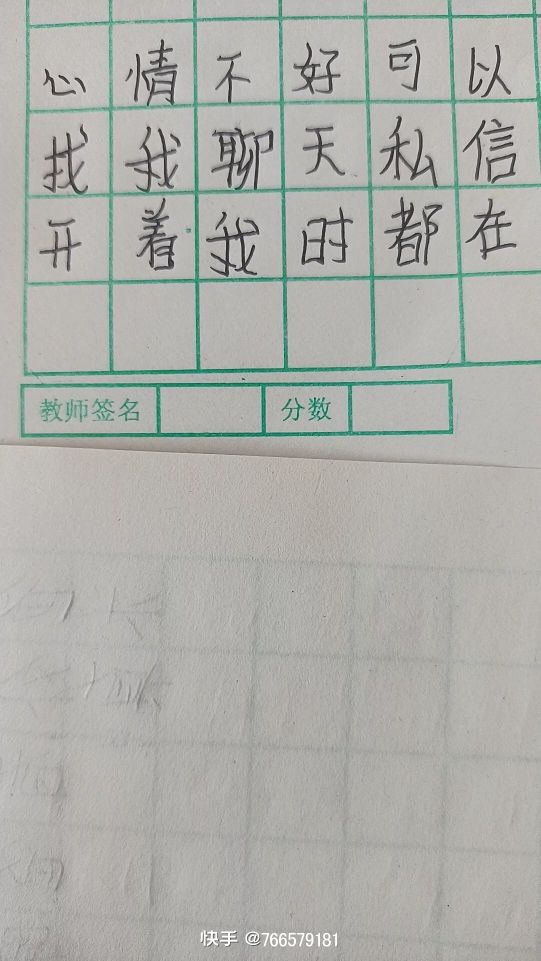 心情不好可以
找我聊天私信
开着我时都在
教师签名 分数
快手 @766579181